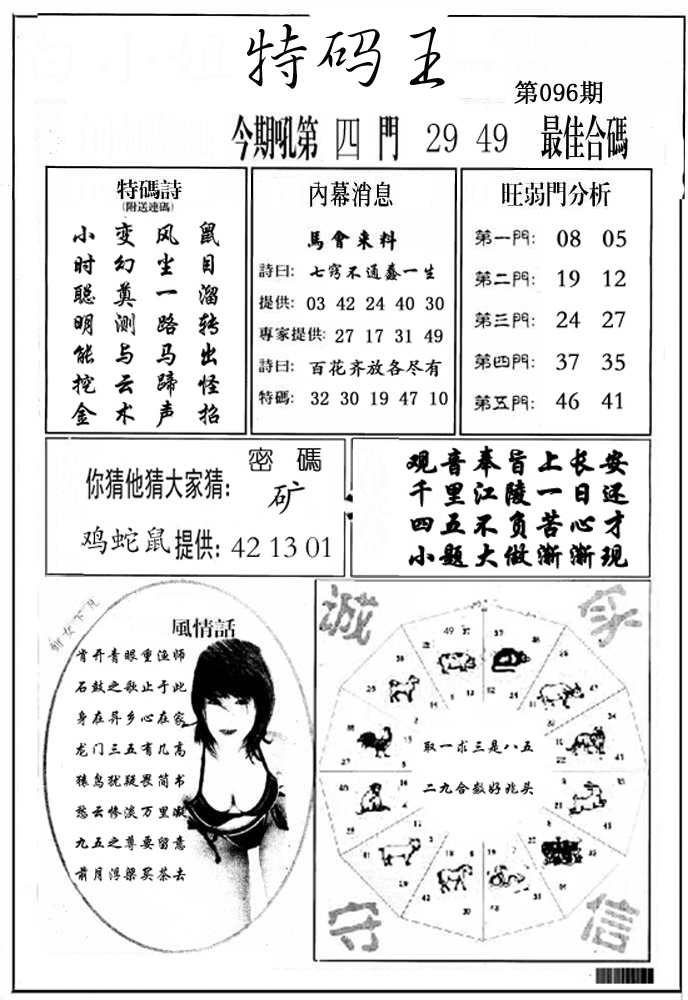 特码王
第096期
今期吼第 四 門 29 49 最佳合碼
特碼詩
(附送連碼)
小 变 风 鼠
时 幻 尘 目
聪 莫 一 溜
明 测 路 转
能 与 马 出
挖 云 蹄 怪
金 术 声 招
內幕消息
馬會来料
詩曰: 七窍不通蠢一生
提供: 03 42 24 40 30
專家提供: 27 17 31 49
詩曰: 百花齐放各尽有
特碼: 32 30 19 47 10
旺弱門分析
第一門: 08 05
第二門: 19 12
第三門: 24 27
第四門: 37 35
第五門: 46 41
密 碼
你猜他猜大家猜:
矿
鸡蛇鼠提供: 42 13 01
观音奉旨上长安
千里江陵一日还
四五不负苦心才
小题大做渐渐现
仙女下凡
風情話
肯开青眼重渔师
石鼓之歌止于此
身在异乡心在家
龙门三五有几高
猿鸟犹疑畏简书
愁云惨淡万里凝
九五之尊要留意
前月浮梁买茶去
诚
家
守
信
49 37
取一求三是八五
二九合数好兆头